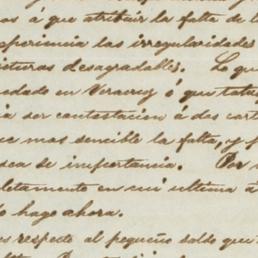 os á que atribuir la falta de l
esperiencia las irregularidades
cturas desagradables. Lo qu
uedado en Veracruz ó que
ia ser contestacion á dos car
ue mas sencible la falta, y p
sea de importancia. Por
letamente en mi ultima á
lo hago ahora.
es respecto al pequeño saldo que